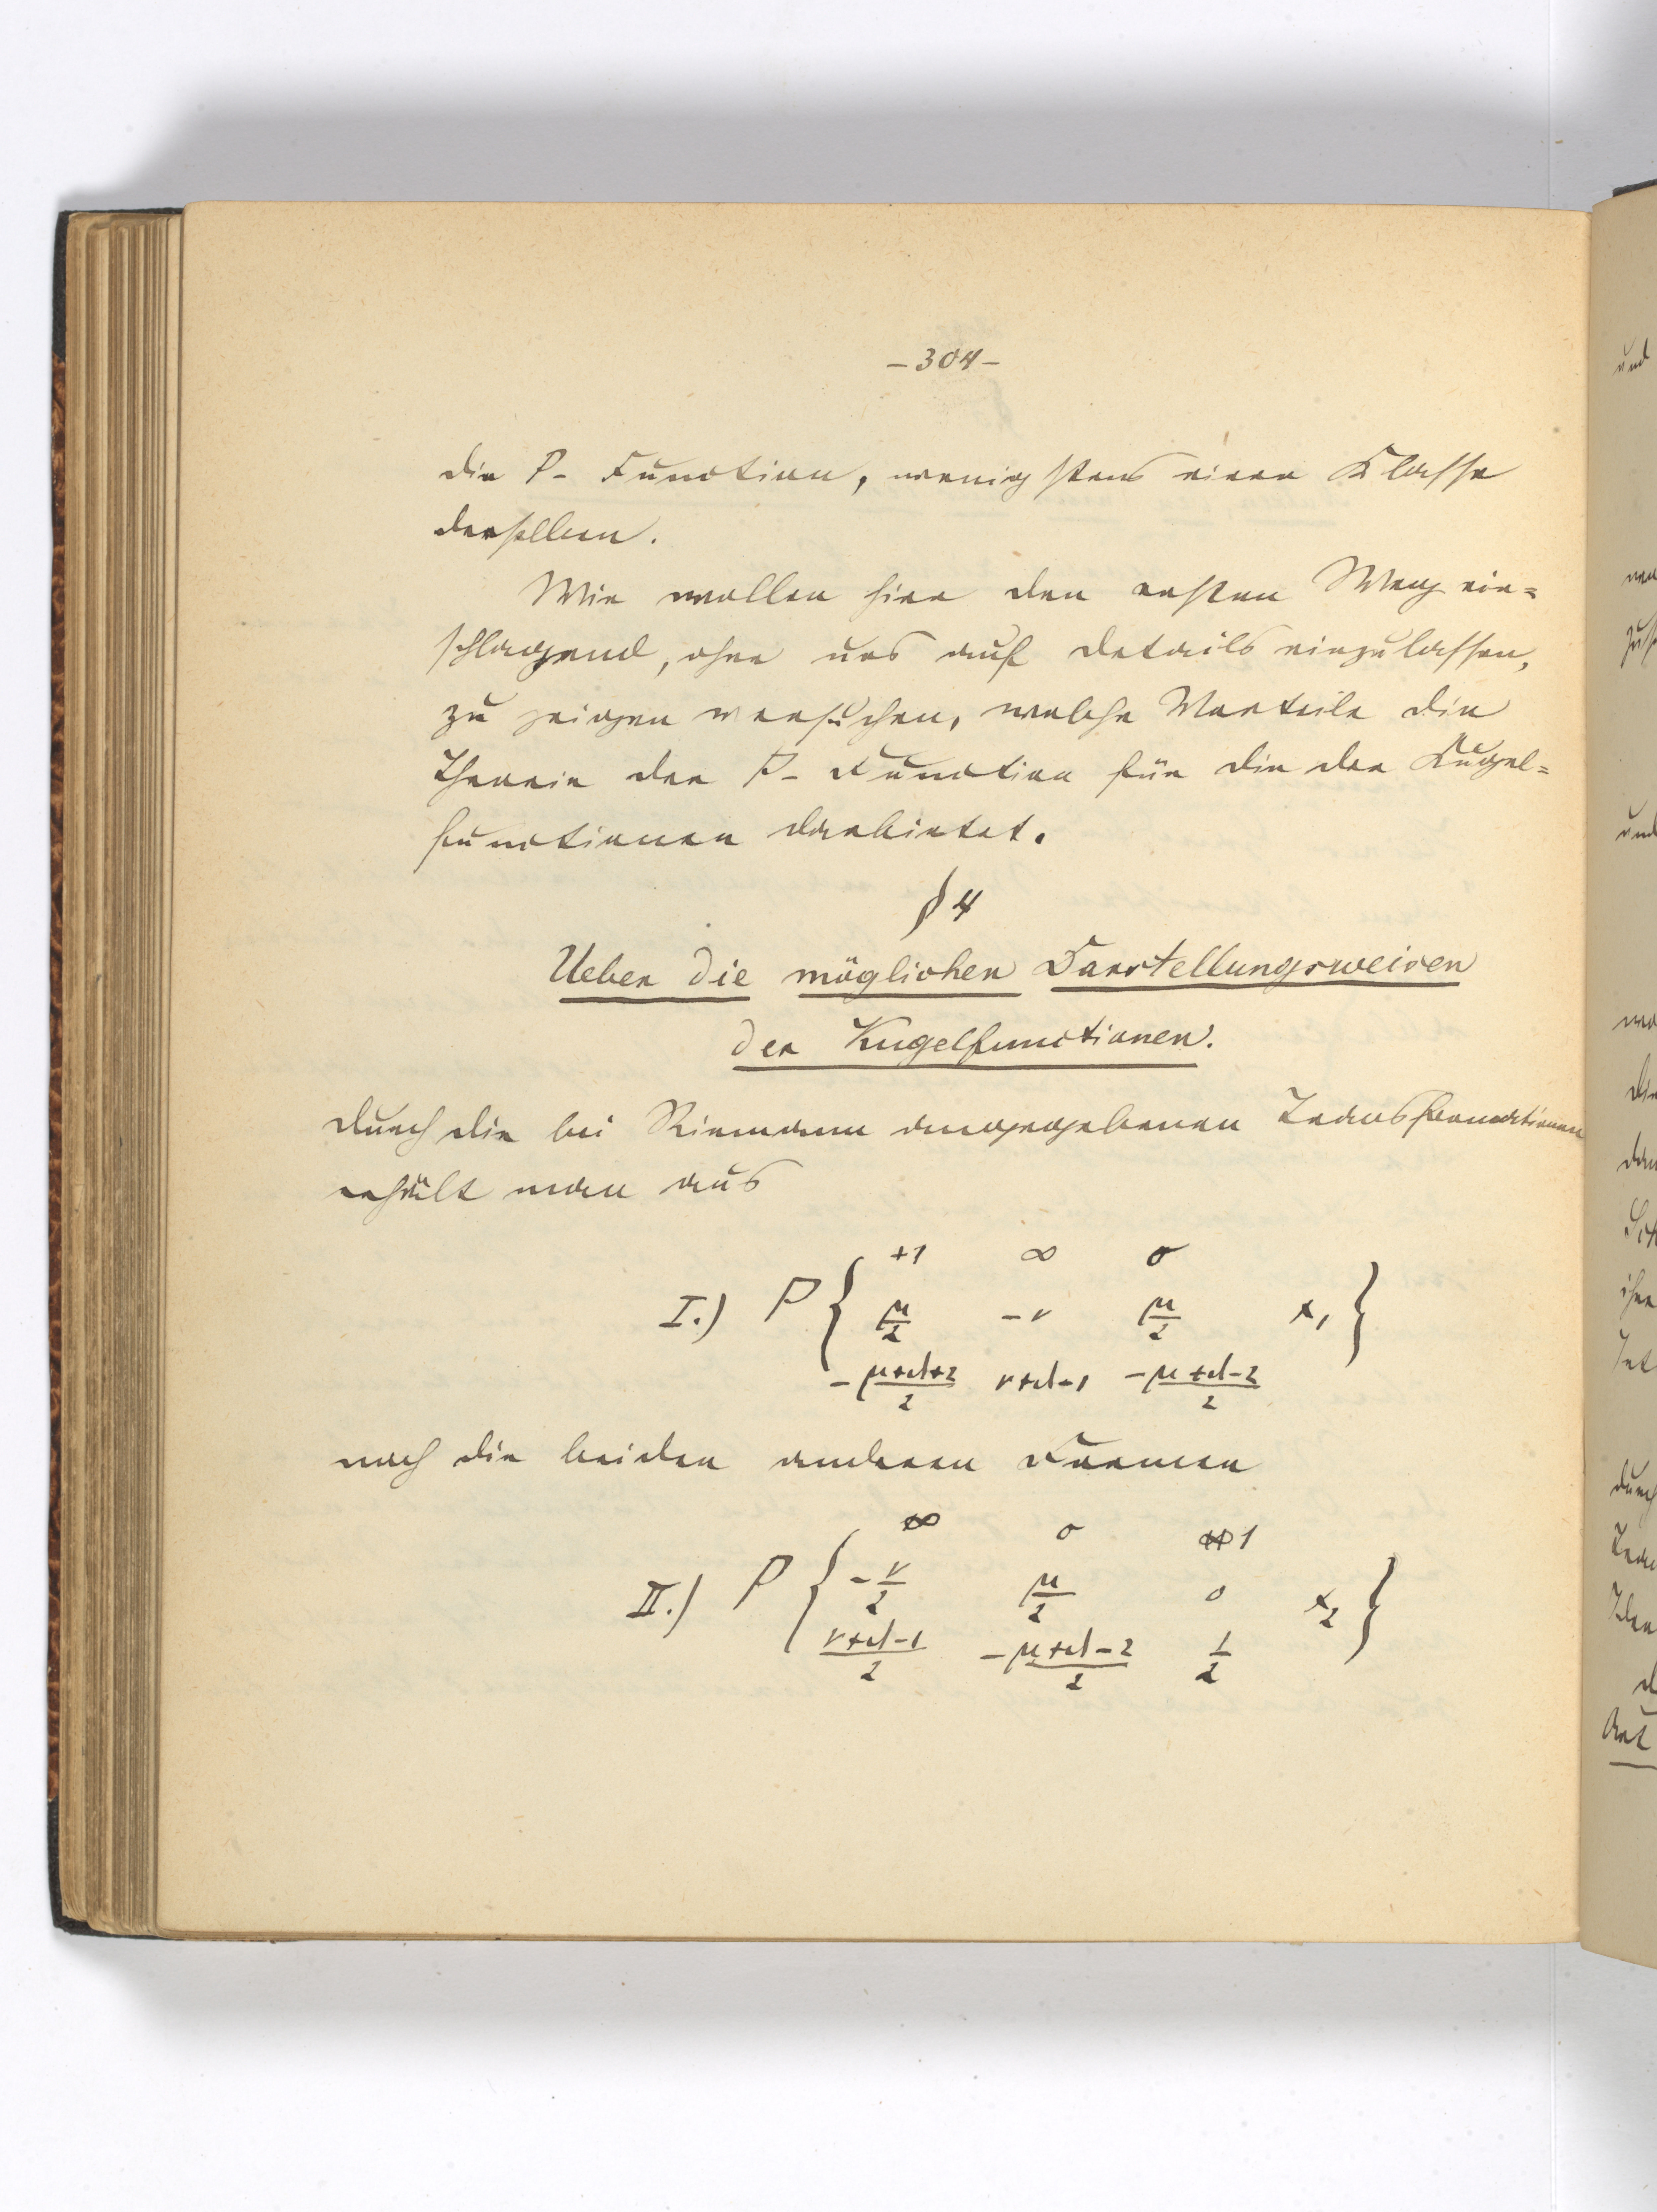 – 304 –
die P- Function, wenigstens einer Klasse
derselben.
Wir wollen hier den ersten Weg ein=
schlagend, ohne uns auf Details einzulassen,
zu zeigen versuchen, welche Vorteile die
Theorie der P- Function für die der Kugel=
functionen darbietet.
§ 4
Ueber die möglichen Darstellungsweisen
der Kugelfunctionen.
Durch die bei Riemann angegebenen Transformationen
erhält man aus
+1 ∞ 0
I.) P { μ/2 -ν μ/2 x₁ }
-(μ+d+2)/2 ν+d-1 -(μ+d-2)/2
noch die beiden anderen Formen
∞ 0 1
II.) P { -ν/2 μ/2 0 x₂ }
(ν+d-1)/2 -(μ+d-2)/2 1/2
und
und
durch